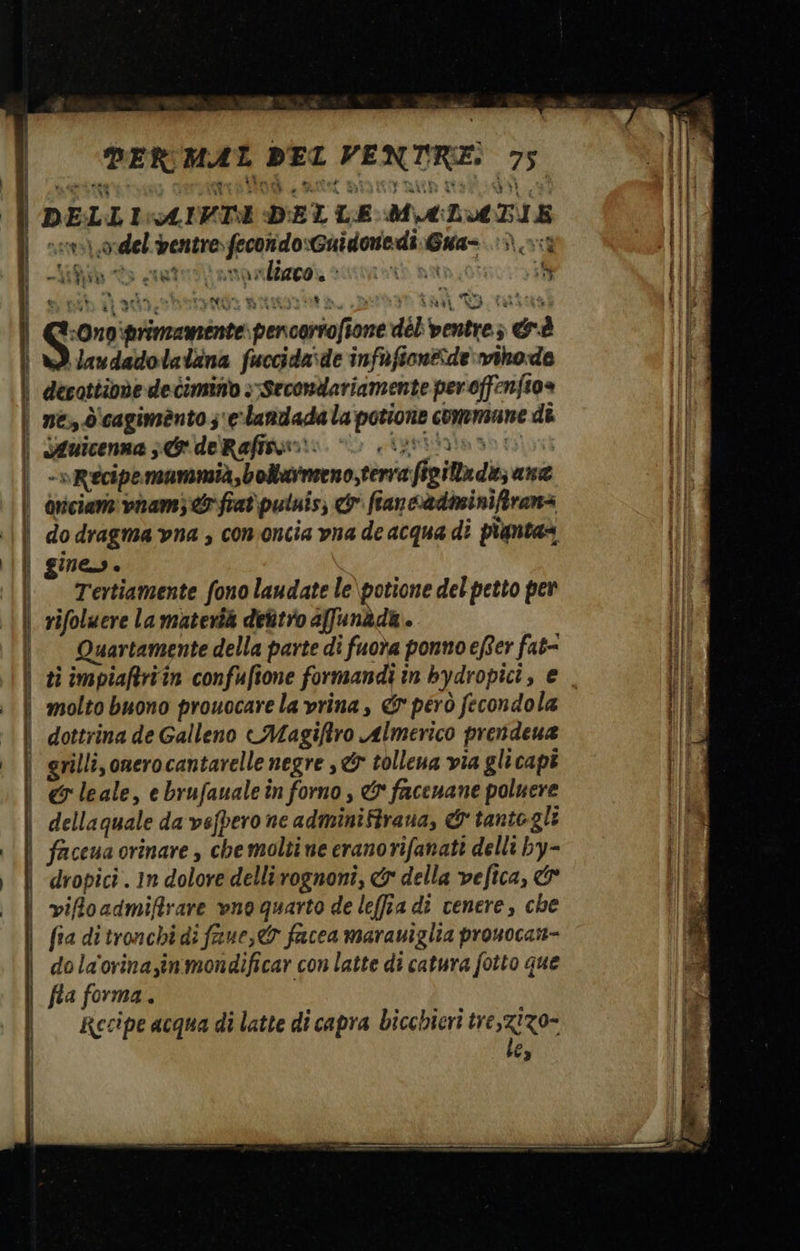 PER MAL DEL VENTRE. 75
DELLI AIVTI DEL LE MALATIE
del ventre secondo Guidone di Gua-
liaco.
SOno primamente per cortosione del ventre, & è
laudado la lana succida de infusione de vino de
decottione de cimino. Secondariamente per offensio-
ne, ò cagimento, e landada la potione commune di
Auicenna, & de Rasis.
Recipe mummia, bollarmeno, terra sigillada, ana
onciam vnam; & fiat puluis, & siane administran-
do dragma vna, con oncia vna de acqua di pianta-
gine.
Tertiamente sono laudate le potione del petto per
risoluere la materia dentro assunada.
Quartamente della parte di fuora ponno esser fat-
ti impiastri in confusione formandi in hydropici, e
molto buono prouocare la vrina, & però secondo la
dottrina de Galleno Magistro Almerico prendeua
grilli, onero cantarelle negre, & tolleua via gli capi
& le ale, e brusauale in forno, & faceuane poluere
della quale da vespero ne administraua, & tanto gli
faceua orinare, che molti ne erano risanati delli hy-
dropici. In dolore delli rognoni, & della vesica, &
visto admistrare vno quarto de lessia di cenere, che
sia di tronchi di faue, & facea marauiglia prouocan-
do la orina, in mondificar con latte di catura sotto que
sta forma.
Recipe acqua di latte di capra bicchieri tre, zizo-
le,